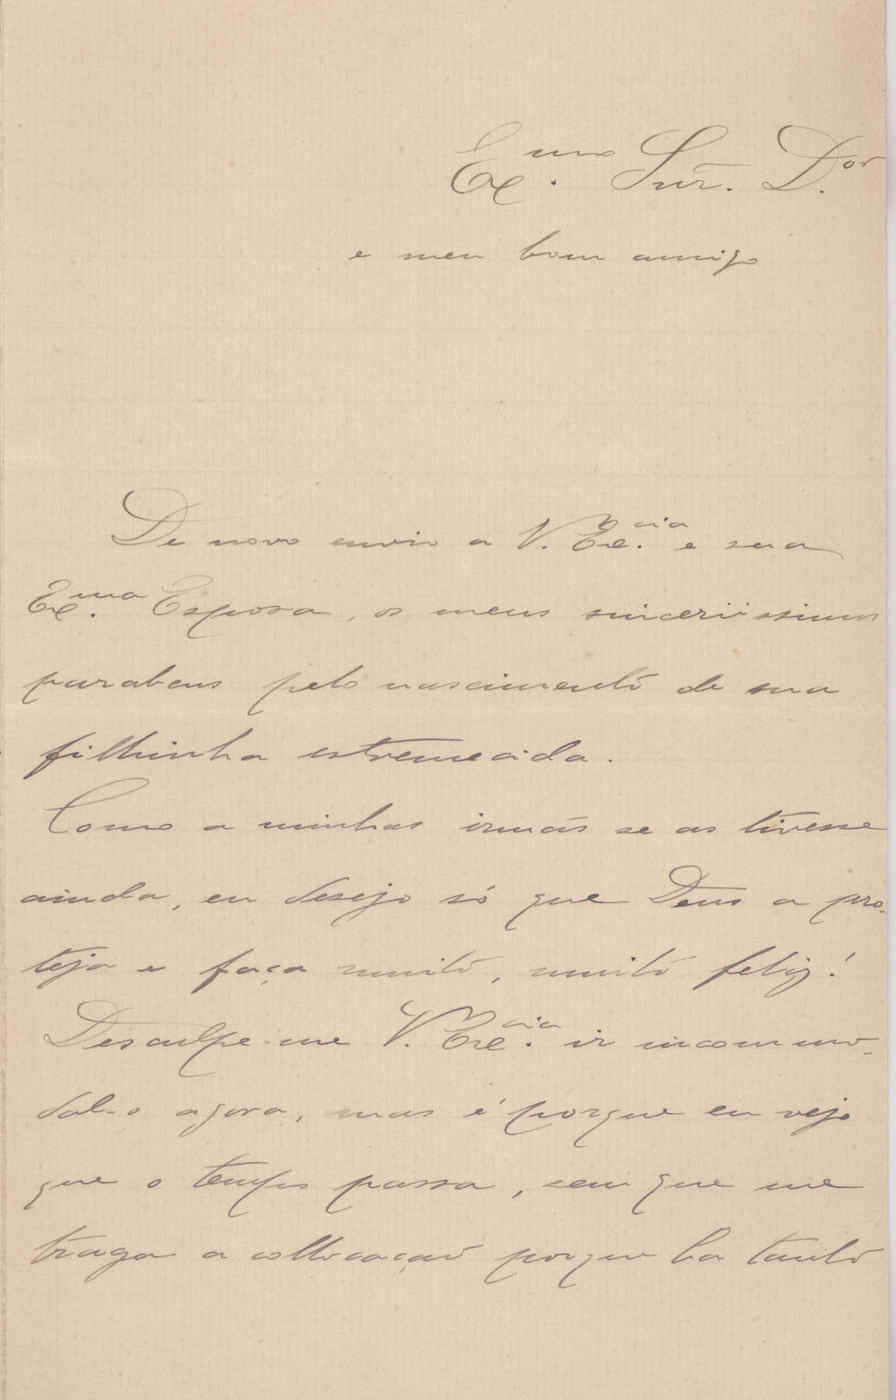 Ex.mo Snr. D.or
e meu bom amigo
De novo envio a V. Ex.cia e sua
Ex.ma Esposa, os meus sincerissimos
parabens pelo nascimento de sua
filhinha estremecida.
Como a minhas irmãs se as tivesse
ainda, eu desejo só que Deus a pro-
teja e faça muito, muito feliz!
Desculpe-me V. Ex.cia ir incommo-
dal-o agora, mas é porque eu vejo
que o tempo passa, sem que me
traga a collocação porque ha tanto